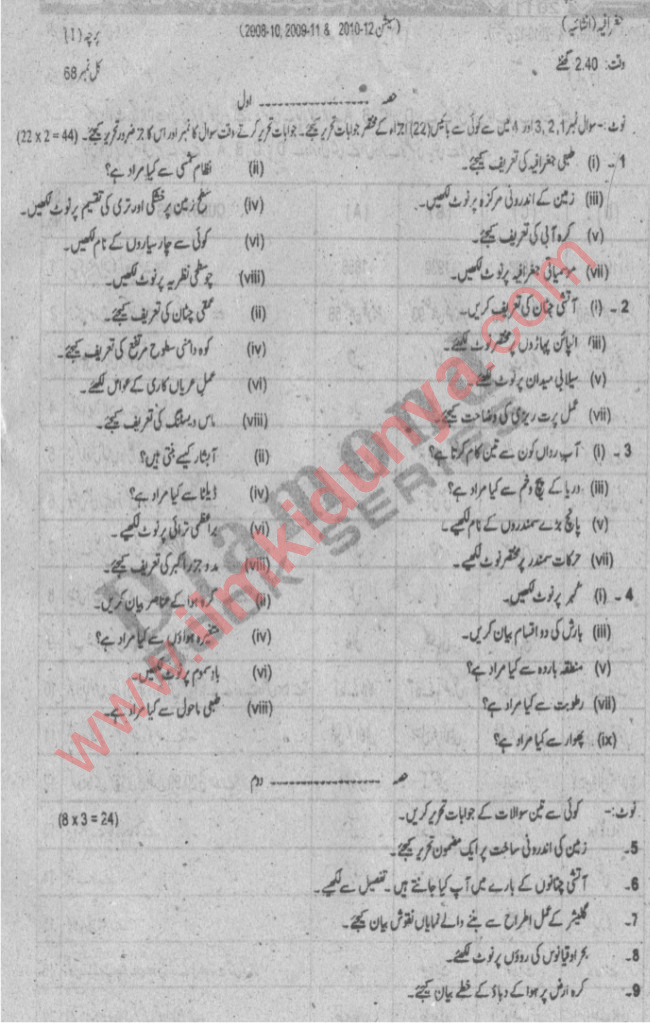 جغرافیہ (انشائیہ) (سیشن 2008-10, 2009-11 & 2010-12) پرچہ (I)
وقت: 2.40 گھنٹے کل نمبر 68
حصہ اول
نوٹ :- سوال نمبر 1, 2, 3 اور 4 میں سے کوئی سے بائیس (22) اجزاء کے مختصر جوابات تحریر کیجئے۔ جوابات تحریر کرتے وقت سوال کا نمبر اور اس کا جز ضرور تحریر کیجئے۔ (22 x 2 = 44)
1 - (i) طبعی جغرافیہ کی تعریف کیجئے۔ (ii) نظام شمسی سے کیا مراد ہے؟
(iii) زمین کے اندرونی مرکزہ پر نوٹ لکھیں۔ (iv) سطح زمین پر خشکی اور تری کی تقسیم پر نوٹ لکھیں۔
(v) کرہ آبی کی تعریف کیجئے۔ (vi) کوئی سے چار سیاروں کے نام لکھیں۔
(vii) موسمیاتی جغرافیہ پر نوٹ لکھیں۔ (viii) چوسطحی نظریہ پر نوٹ لکھیں۔
2 - (i) آتشی چٹان کی تعریف کریں۔ (ii) عمقی چٹان کی تعریف کیجئے۔
(iii) الپائن پہاڑوں پر مختصر نوٹ لکھئے۔ (iv) کوہ دامنی سطوح مرتفع کی تعریف کیجئے۔
(v) سیلابی میدان پر نوٹ لکھئے۔ (vi) عمل عریاں کاری کے عوامل لکھئے۔
(vii) عمل پرت ریزی کی وضاحت کیجئے۔ (viii) ماس ویسٹنگ کی تعریف کیجئے۔
3 - (i) آب رواں کون سے تین کام کرتا ہے؟ (ii) آبشار کیسے بنتی ہیں؟
(iii) دریا کے پیچ و خم سے کیا مراد ہے؟ (iv) ڈیلٹا سے کیا مراد ہے؟
(v) پانچ بڑے سمندروں کے نام لکھیے۔ (vi) براعظمی ترائی پر نوٹ لکھیے۔
(vii) حرکات سمندر پر مختصر نوٹ لکھیے۔ (viii) مدوجزر اکبر کی تعریف کیجئے۔
4 - (i) کہر پر نوٹ لکھیں۔ (ii) کرہ ہوا کے عناصر بیان کریں۔
(iii) بارش کی دو اقسام بیان کریں۔ (iv) متغیرہ ہواؤں سے کیا مراد ہے؟
(v) منطقہ باردہ سے کیا مراد ہے؟ (vi) باد سموم پر نوٹ لکھیں۔
(vii) رطوبت سے کیا مراد ہے؟ (viii) طبعی ماحول سے کیا مراد ہے؟
(ix) پھوار سے کیا مراد ہے؟
حصہ دوم
نوٹ :- کوئی سے تین سوالات کے جوابات تحریر کریں۔ (8 x 3 = 24)
5- زمین کی اندرونی ساخت پر ایک مضمون تحریر کیجئے۔
6- آتشی چٹانوں کے بارے میں آپ کیا جانتے ہیں۔ تفصیل سے لکھیے۔
7- گلیشئر کے عمل اطراح سے بننے والے نمایاں نقوش بیان کیجئے۔
8- بحر اوقیانوس کی روؤں پر نوٹ لکھئے۔
9- کرہ ارض پر ہوا کے دباؤ کے خطے بیان کیجئے۔
www.ilmkidunya.com
Diamond
BOOK SERIES